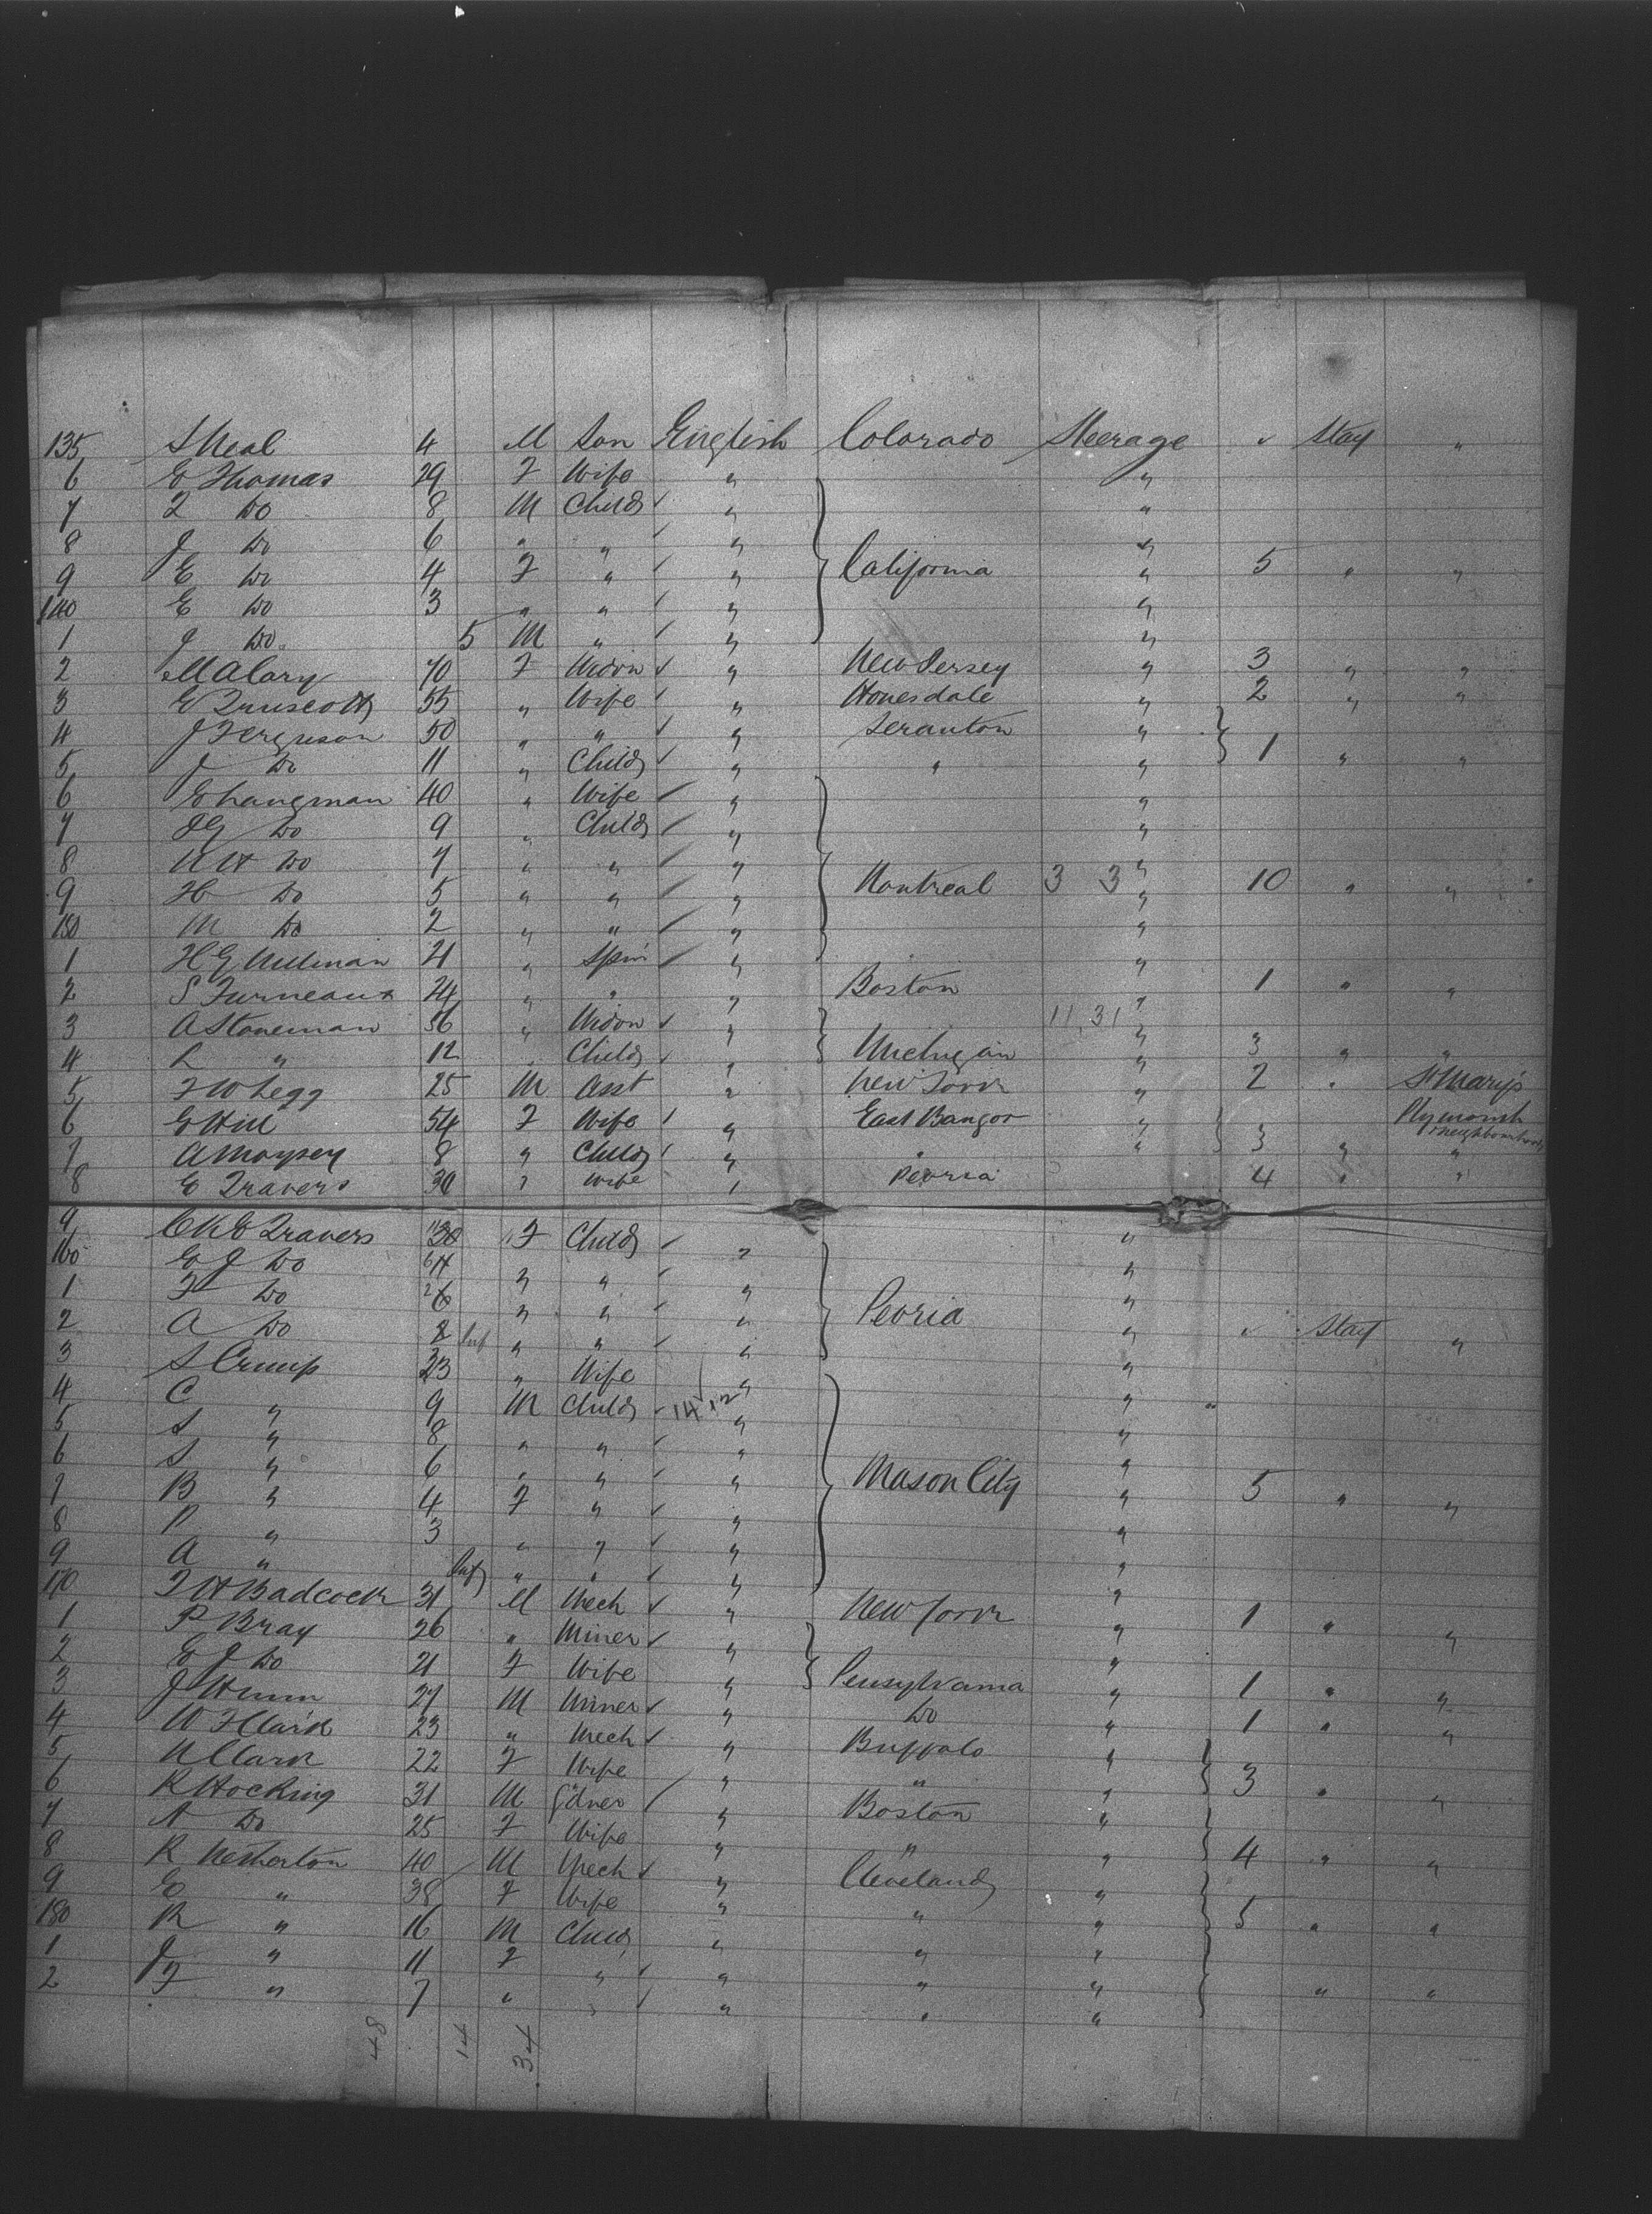 135 S Neal 4 M Son English Colorado Steerage " Stay "
6 E Thomas 29 F Wife " "
7 F Do 8 M Child " "
8 J Do 6 " " " "
9 E Do 4 F " " California " 5 " "
140 E Do 3 " " " "
1 J Do 5 M " " "
2 M A Lary 70 F Widow " New Jersey " 3 " "
3 E Truscott 55 " Wife " Honesdale " 2 " "
4 J Ferguson 50 " " " Scranton "
5 J Do 11 " Child " " " 1 " "
6 E Langman 40 " Wife " "
7 J G Do 9 " Child " "
8 W H Do 7 " " " "
9 H Do 5 " " " Montreal 3 3 " 10 " "
150 M Do 2 " " " "
1 H G 21 " Spin " "
2 S Furneaux 24 " " " Boston " 1 " "
3 A Stoneman 56 " Widow " 11,31 "
4 L " 12 " Child " Michigan " 3 " "
5 F W Legg 25 M Asst " New York " 2 " St Mary's
6 E Hill 54 F Wife " East Bangor " Plymouth neighbourhood
7 A Moysey 8 " Child " " " 3 " "
8 E Travers 30 " Wife " Peoria 4 " "
9 C K E Travers F Child " "
160 E J Do " " " "
1 F Do 6 " " " "
2 A Do Inf " " " Peoria " " Stay "
3 S Crump 33 " Wife " "
4 C " 9 M Child 14,12 " "
5 S " 8 " " " "
6 S " 6 " " " "
7 B " 4 F " " Mason City " 5 " "
8 P " 3 " " " "
9 A " Inf " " " "
170 F H Badcock 31 M Mech " New York " 1 " "
1 P Bray 26 " Miner " "
2 E J Do 21 F Wife " Pensylvania " 1 " "
3 J Hunn 27 M Miner " Do " 1 " "
4 W J Clark 23 " Mech " Buffalo "
5 N Clark 22 F Wife " " " 3 " "
6 R Hocking 31 M Gdner " Boston "
7 A Do 25 F Wife " " " 4 " "
8 R Netherton 40 M Mech " Cleveland "
9 E " 38 F Wife " " " 5 " "
180 R " 16 M Child " " "
1 J " 11 F " " " " " "
2 F " 7 " " " " "
48 14 34